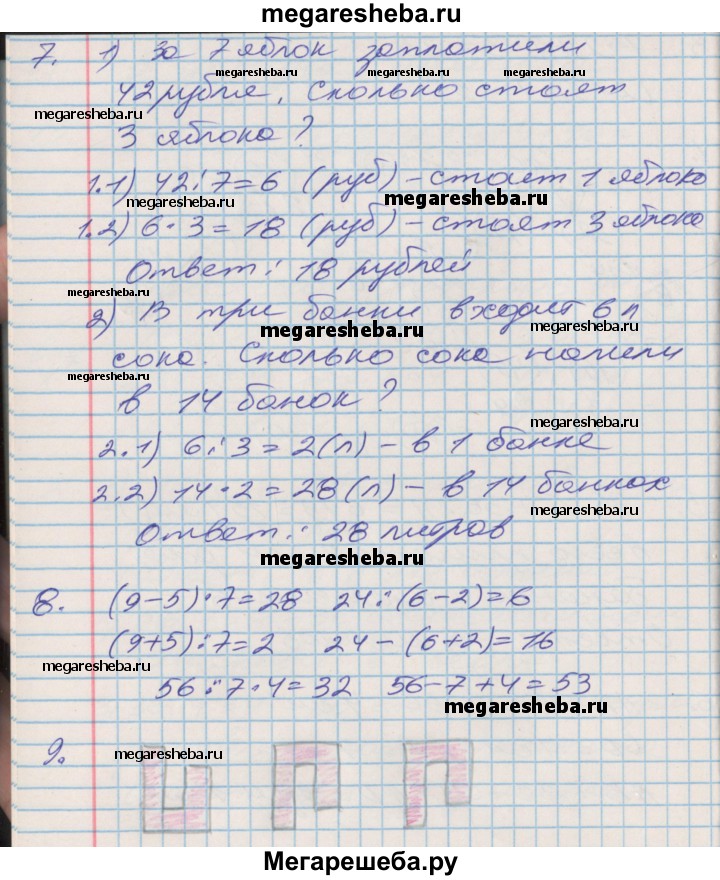 megaresheba.ru
7. 1) За 7 яблок заплатили
megaresheba.ru megaresheba.ru megaresheba.ru
42 рубля. Сколько стоят
megaresheba.ru
3 яблока?
1.1) 42:7=6 (руб) – стоит 1 яблоко
megaresheba.ru megaresheba.ru
1.2) 6·3=18 (руб) – стоят 3 яблока
Ответ: 18 рублей
megaresheba.ru
2) В три банки входит 6 л
megaresheba.ru megaresheba.ru
сока. Сколько сока налили
megaresheba.ru
в 14 банок?
megaresheba.ru
2.1) 6:3=2(л) – в 1 банке
2.2) 14·2=28(л) – в 14 банках
megaresheba.ru
Ответ: 28 литров
megaresheba.ru
8. (9-5)·7=28 24:(6-2)=6
(9+5):7=2 24-(6+2)=16
megaresheba.ru
56:7·4=32 56-7+4=53
megaresheba.ru
9. megaresheba.ru
Мегарешеба.ру